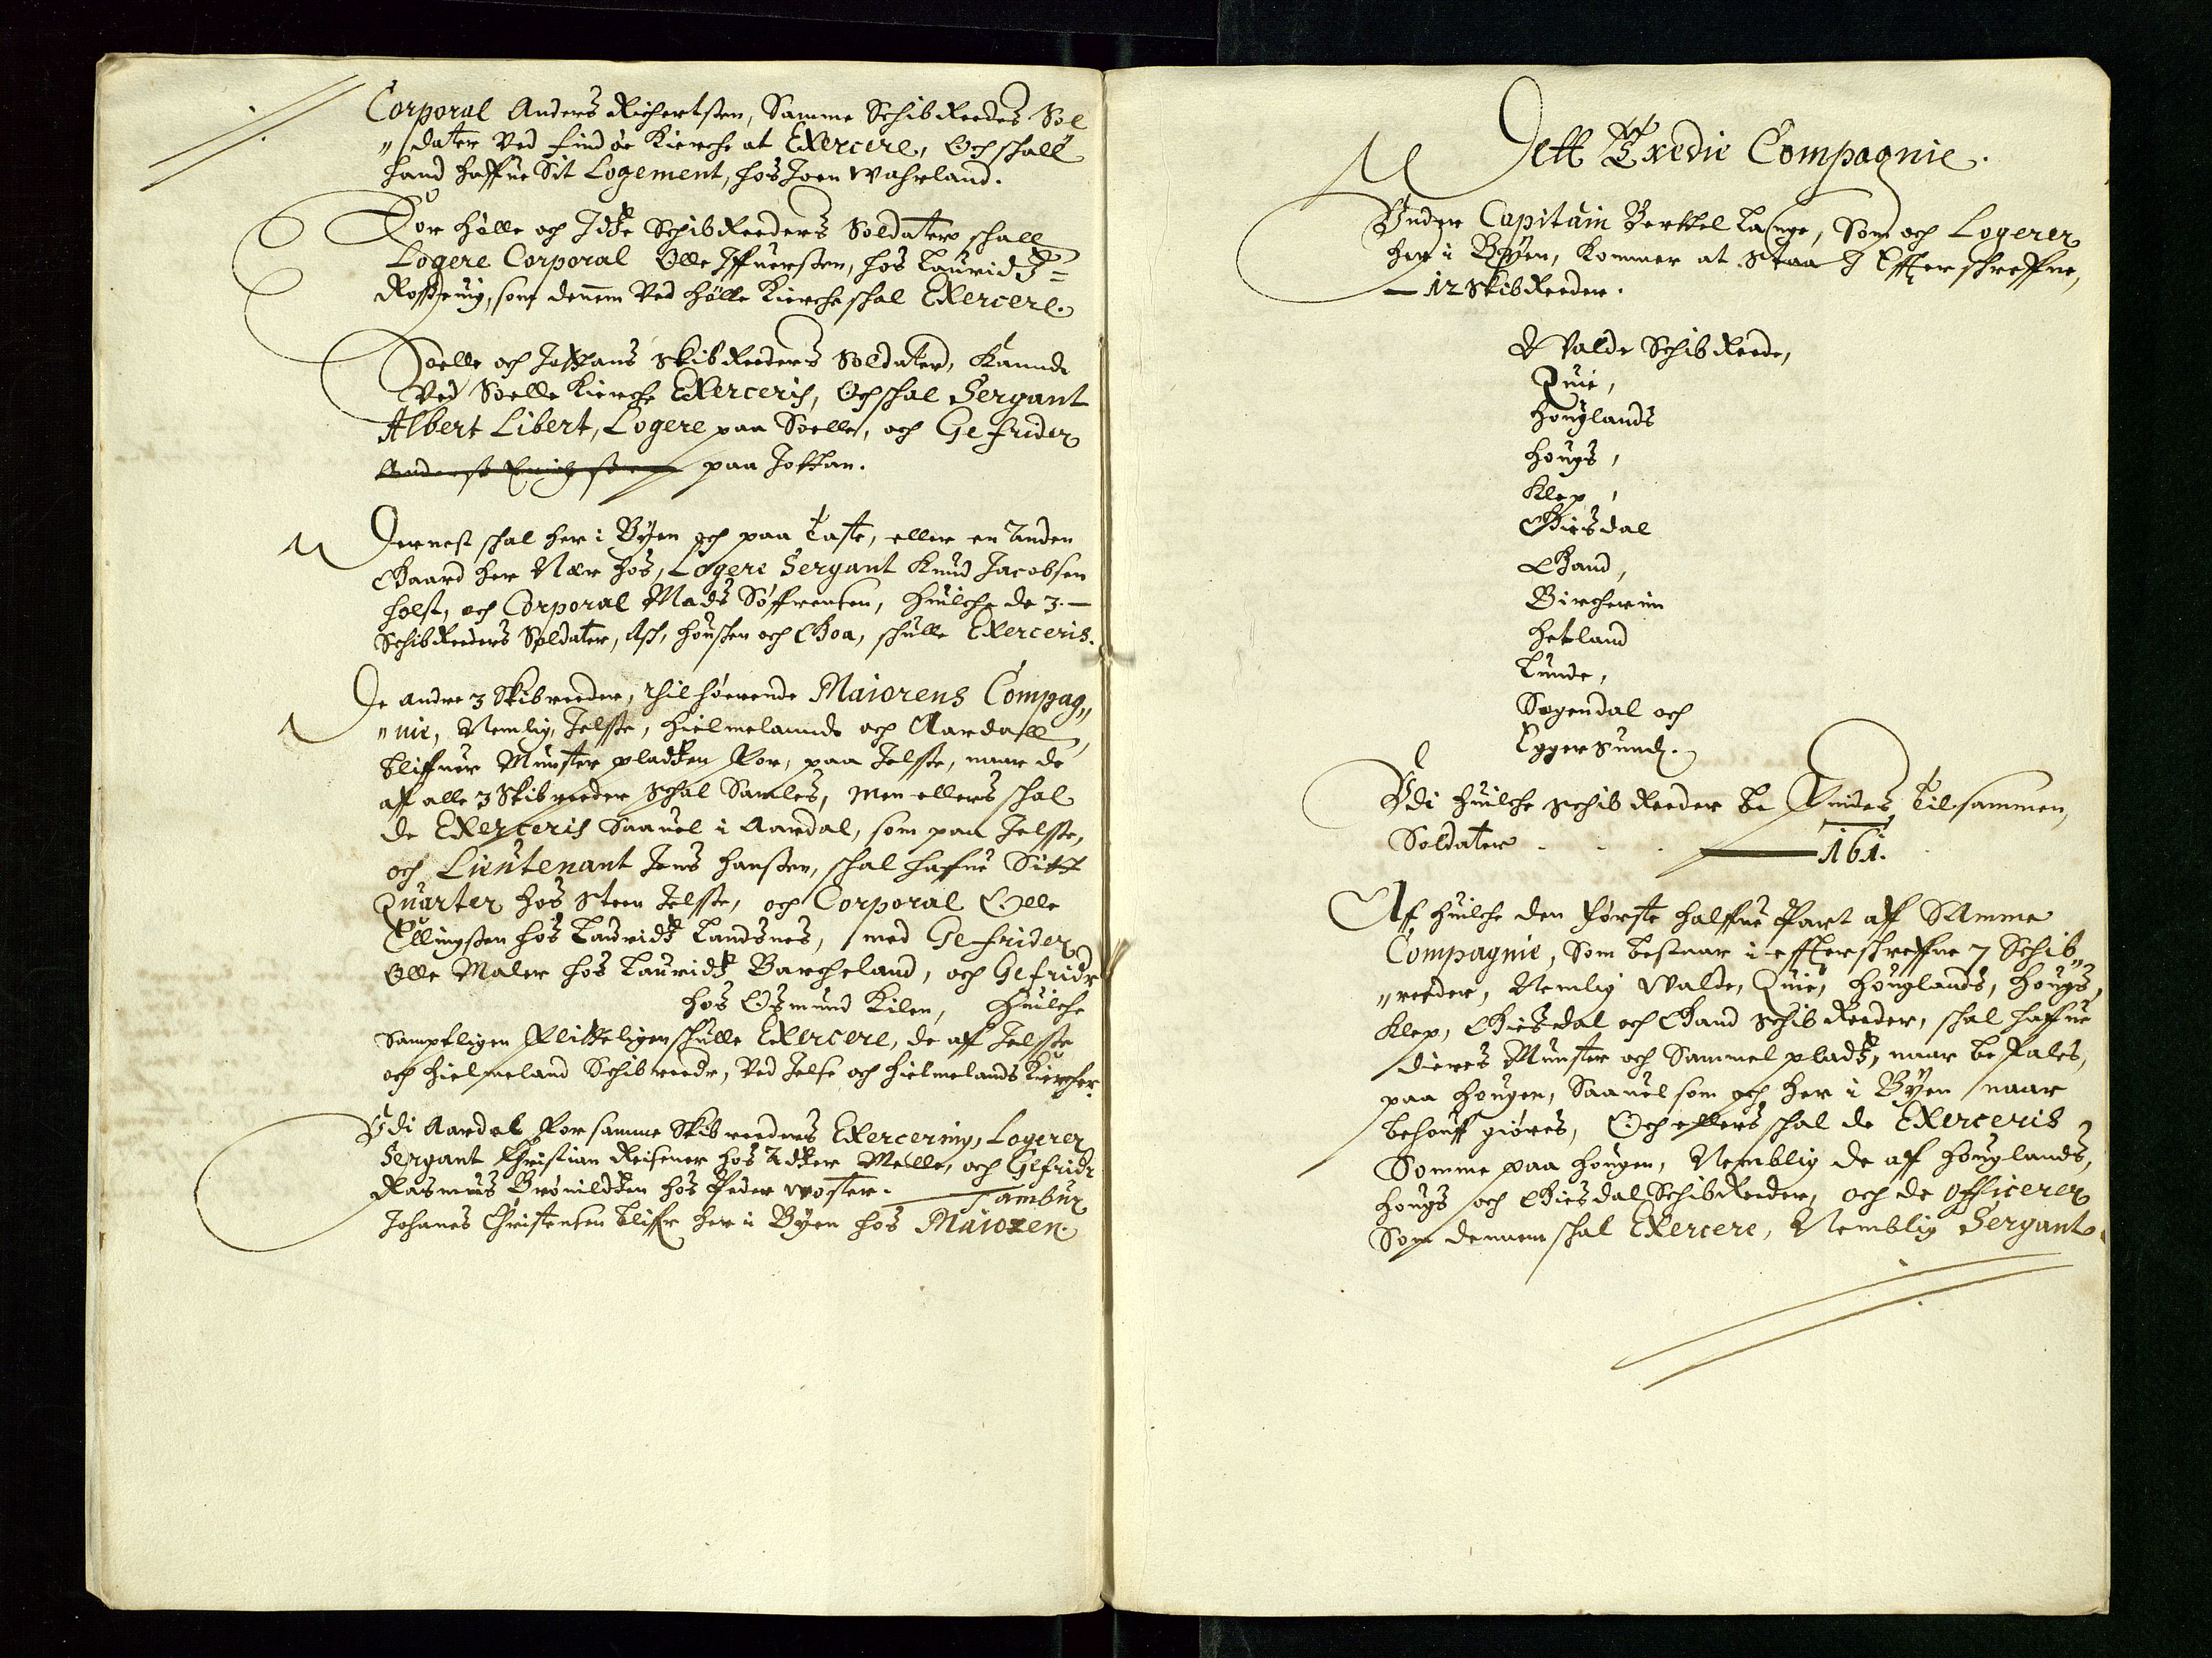 Corporal Anders Richertsen, Samme Schib Reedes Sol
„dater Ved Findöe Kierche at Exercere, Och schall
hand haffue Sit Logement, hos Joen Wahrland.
For Hölle och Idtze Schib Reeders Soldater schall
Logere Corporal Olle Iffuersen, hos Lauridtz
som dennem Ved Hölle Kierche schal Exercere.
Soelle och Jottans Skib Reeders Soldater, Kunde
Ved Soelle Kierche Exerceris, Och schal Sergant
Albert Libert, Logere paa Soelle, och Gefrider
paa Jottan.
Dernest schal her i Byen och paa Taste, eller en Anden
Gaard her Nær hos, Logere Sergant Knud Jacobsen
Holst, och Corporal Mads Söffrensen, Huilche de 3.
Schib Reeders Soldater, Ask, Housken och Goa, schulle Exerceris.
De andre 3 Skibreeder, thilhöerende Maiorens Compag„
„nie, Nemlig, Jelsse, Hielmelannd och Aardall,
bliffuer Munster pladtzen For, paa Jelsse, naar de
aff alle 3 Skibreeder schal Samles, Men ellers schal
de Exerceris Saauel i Aardal, som paa Jelsse,
och Lieutenant Jens Hansen, schal haffue Sitt
Quarter hos Steen Jelsse, och Corporal Olle
Ellingsen hos Lauridtz Landsnes, med Gefrider
Olle Maler hos Lauridtz Barcheland, och Gefridr
hos Osmund Kilen, Huilche
Samptligen Flitteligen schulle Exercere, de aff Jelsse
och Hielmeland Schibreedr, Ved Jelse och Hielmelands Kiercher.
Udi Aardal For samme Skibreeders Exercering, Logerer
Sergant Christian Reisener hos Adtzer Melle, och Gefridr
Rasmus hos Peder Woster. Tambur
Johanes Christensen bliffr her i Byen hos Maioren.
Dett Tredie Compagnie.
Under Capitain Berttel Lange, Som och Logerer
her i Byen, Kommer at Staa I Effterschreffne,
12 Skib Reeder.
Walde Schib Reede,
Quie,
Houglands
Hougs,
Klep,
Giesdal
Gand,
Bircherim
Hetland
Lunde,
Sogendal och
Eggersund.
Udi Huilche Schib Reeder be Findes Tilsammen,
Soldater 161.
Aff Huilche den Förste halffue Part aff Samme
Compagnie, Som bestaar i effterschreffne 7 Schib„
„reeder, Nemlig Walde, Quie, Houglands, Hougs,
Klep, Giesdal och Gand Schib Reeder, schal haffue
dieres Munster och Sammel pladtz, naar be Fales,
paa Hougen, Saauel som och her i Byen naar
behouff giöres, Och ellers schal de Exerceris
Somme paa Hougen, Nemblig de aff Houglands,
Hougs och Giesdal Schib Reeder, och de officerer
Som dennem schal Exercere, Nemblig Sergant